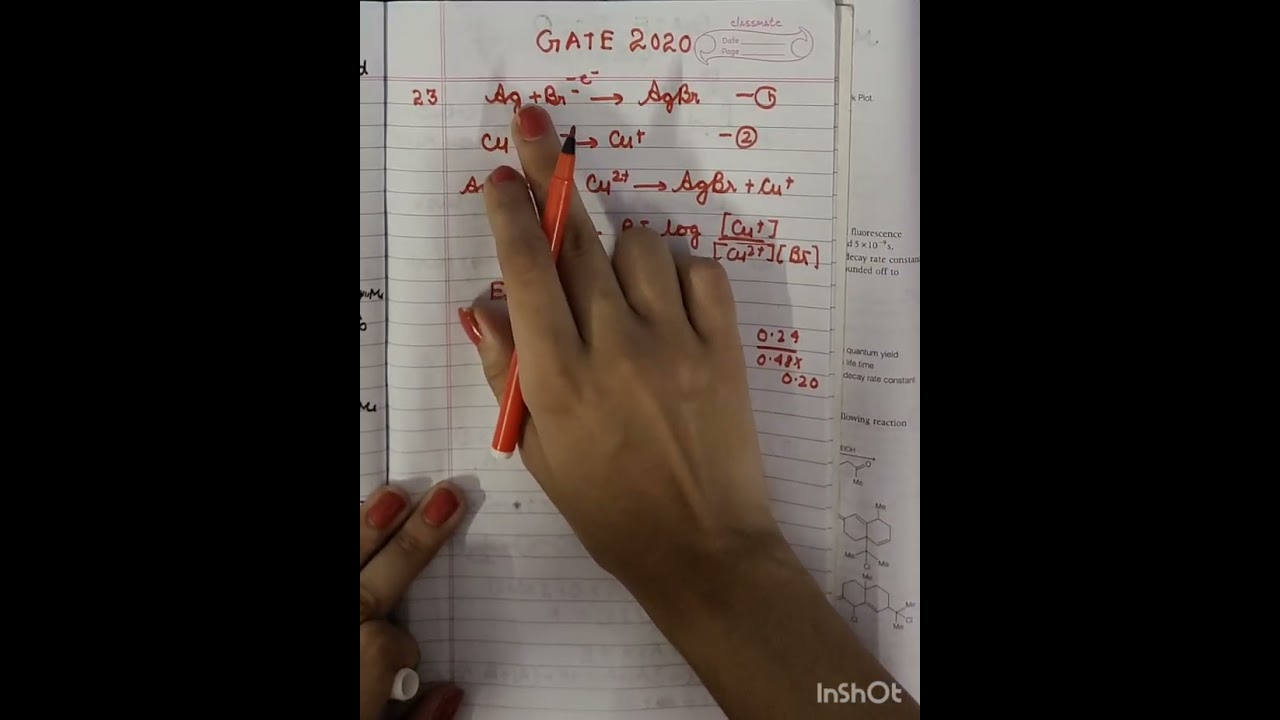 classmate
Date
Page
GATE 2020
23 Ag + Br⁻ -e⁻ → AgBr -①
Cu → Cu⁺ -②
Cu²⁺ → AgBr + Cu⁺
log [Cu⁺]
[Cu²⁺][Br⁻]
0.24
0.48x
0.20
k Plot.
fluorescence
d 5 × 10⁻⁹ s.
decay rate constan
ounded off to
quantum yield
life time
decay rate constant
llowing reaction
EtOH
O
Me
Me
Me
Me
Cl
Me
Me
Cl
Cl
Me
InShOt